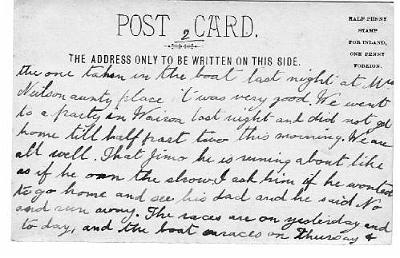 POST CARD.
2
HALF PENNY
STAMP
FOR INLAND,
ONE PENNY
FOREIGN.
THE ADDRESS ONLY TO BE WRITTEN ON THIS SIDE.
the one taken in the boat last night at Mrs
Neilson aunty place it was very good. We went
to a party in Wairoa last night and did not get
home till half past two this morning. We are
all well. That Jimo he is runing about like
as if he own the show I ask him if he wonted
to go home and see his dad and he said No
and run away. The races are on yesterday and
to day, and the boat races on Thursday &